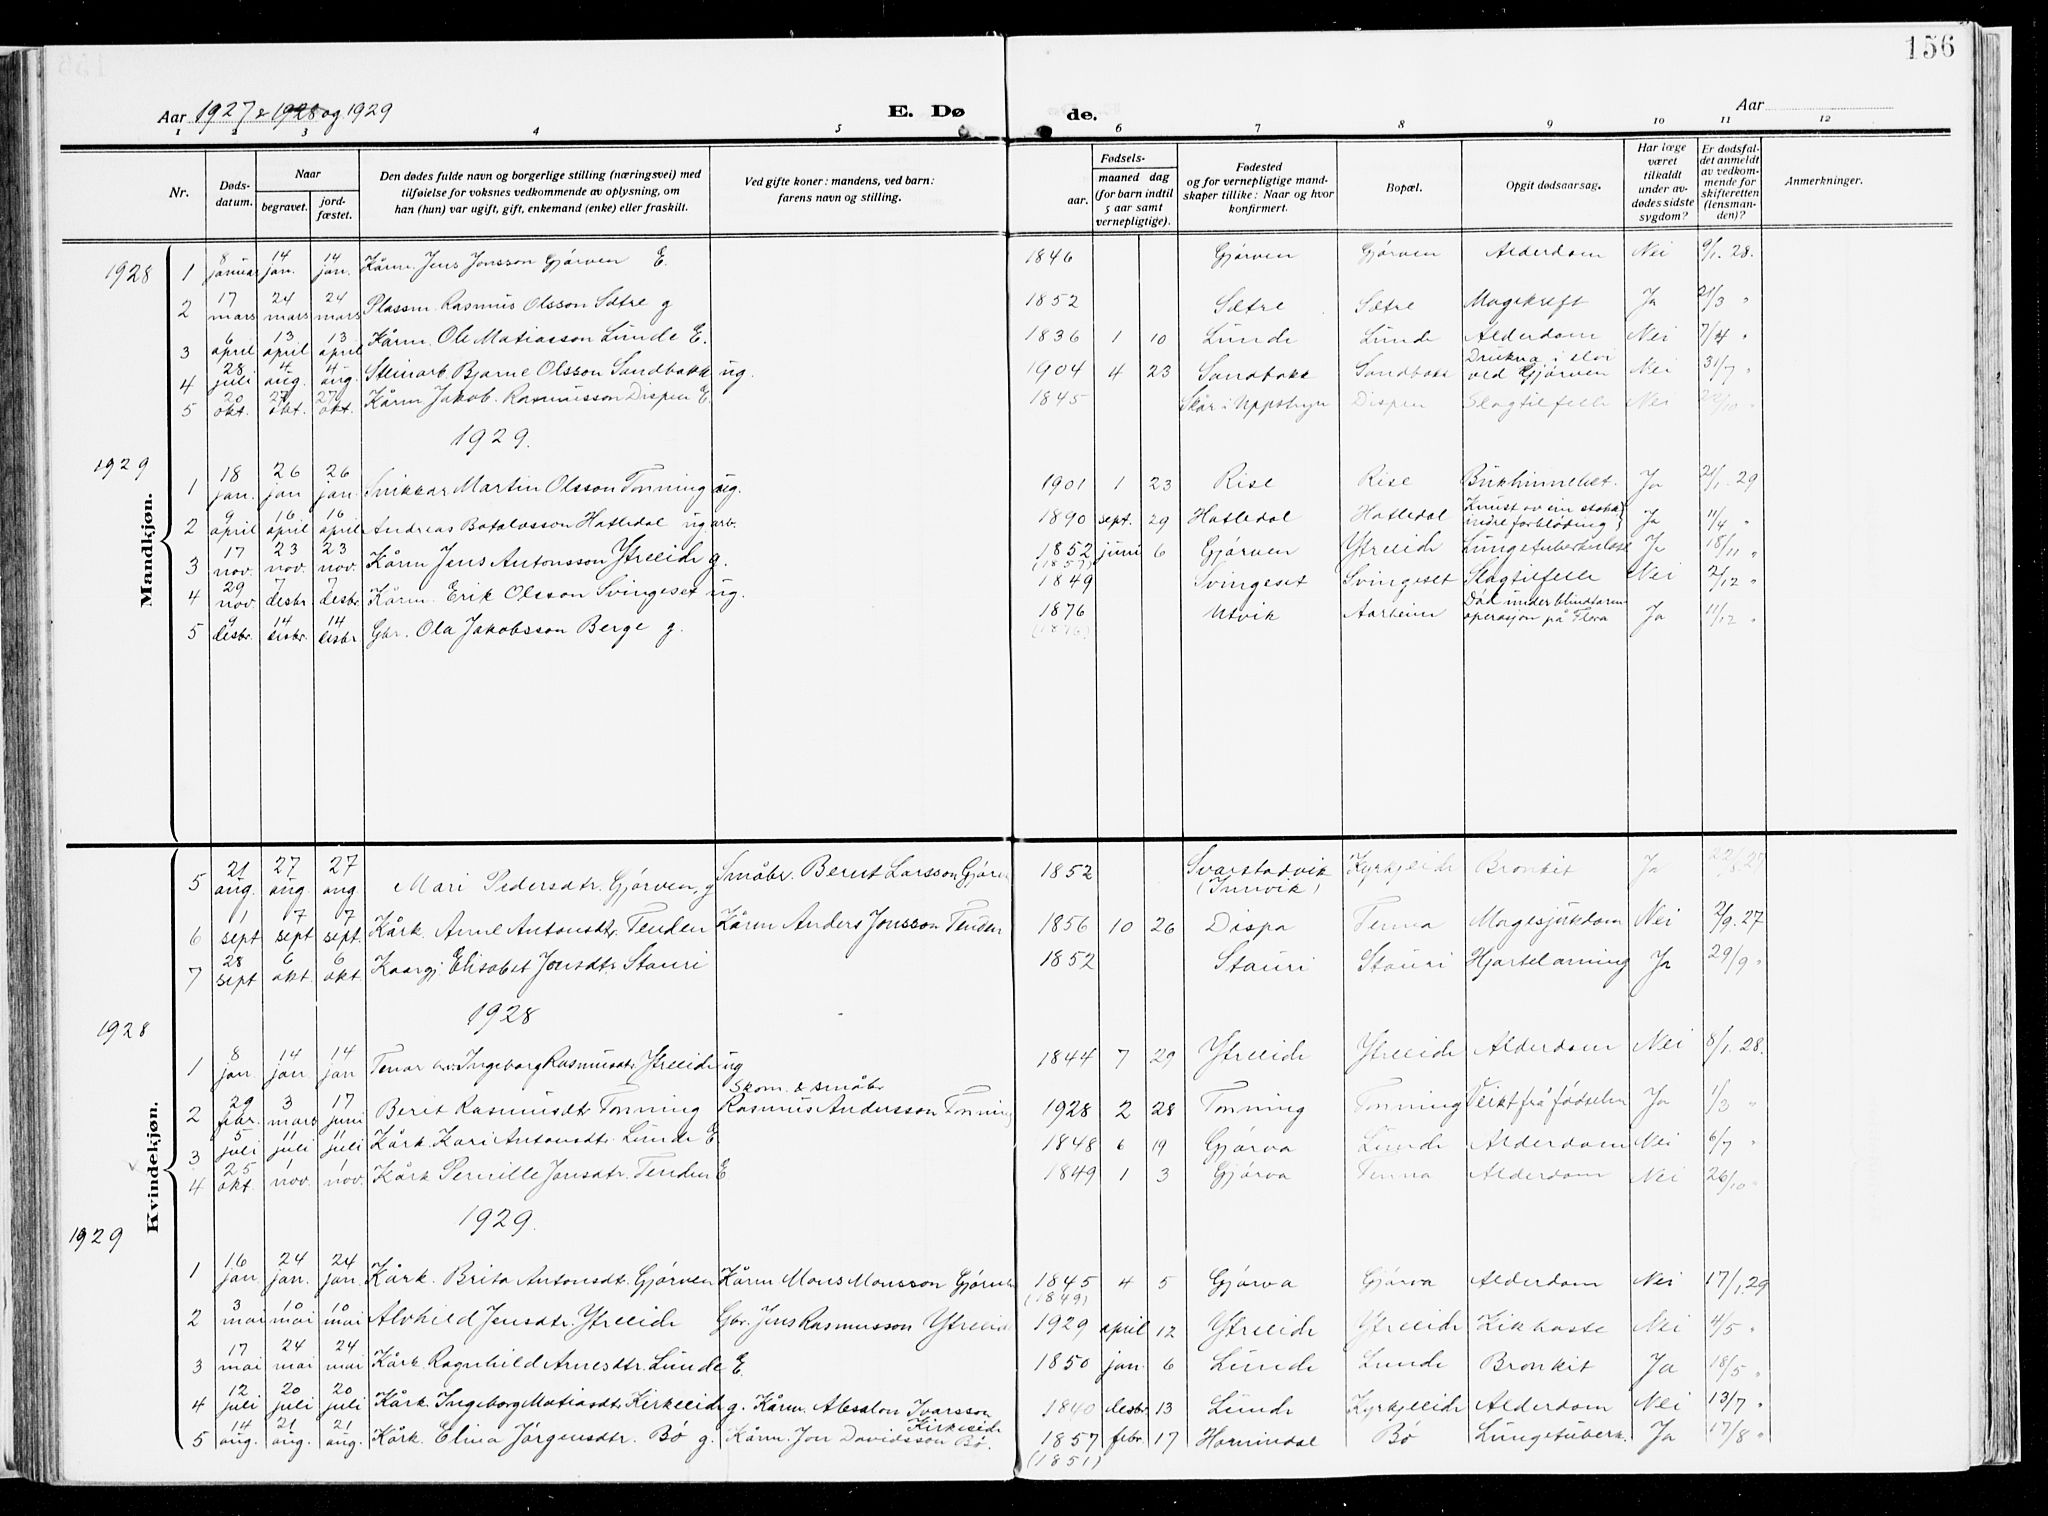 156
Aar 1927 & 1928 og 1929 E. Døde. Aar
1 2 3 4 5 6 7 8 9 10 11 12
Nr. Døds-datum. Naar begravet. jord-fæstet. Den dødes fulde navn og borgerlige stilling (næringsvei) med tilføielse for voksnes vedkommende av oplysning, om han (hun) var ugift, gift, enkemand (enke) eller fraskilt. Ved gifte koner: mandens, ved barn: farens navn og stilling. Fødsels- aar. maaned dag (for barn indtil 5 aar samt vernepligtige). Fødested og for vernepligtige mand-skaper tillike: Naar og hvor konfirmert. Bopæl. Opgit dødsaarsag. Har læge været tilkaldt under av-dødes sidste sygdom? Er dødsfal-det anmeldt av vedkom-mende for skifteretten (lensman-den)? Anmerkninger.
Mandkjøn.
1928
1 8 januar 14 jan. 14 jan. Kårm. Jens Jonsson Gjørven E. 1846 Gjørven Gjørven Alderdom Nei 9/1. 28.
2 17 mars 24 mars 24 mars Plassm. Rasmus Olsson Sætre g 1852 Sætre Sætre Magekræft Ja 21/3 "
3 6 april 13 april 13 april Kårm. Ole Matiasson Lunde E. 1836 1 10 Lunde Lunde Alderdom Nei 7/4 "
4 28 juli 4 aug. 4 aug. Steinarb. Bjarne Olsson Sandbakk ug. 1904 4 23 Sandbakk Sandbakk Drukna i elvi ved Gjørven Nei 31/7 "
5 20 okt. 27 okt. 27 okt. Kårm. Jakob Rasmusson Dispen E 1845 Skår i Uppstryn Dispen Slagtilfelle Nei 22/10 "
1929.
1929
1 18 jan. 26 jan 26 jan. Snikkar Martin Olsson Tonning ug. 1901 1 23 Rise Rise Bukhinnebet. Ja 21/1. 29
2 9 april 16 april 16 april Andreas Botolvsson Hatledal ug arb. 1890 sept. 29 Hatledal Hatledal Knust av ein stokk, indre forbløding Ja 11/4 "
3 17 nov. 23 nov. 23 nov. Kårm Jens Antonsson Ytreeide g. 1852 (1857) juni 6 Gjørven Ytreeide Lungetuberkulose Ja 18/11 "
4 29 nov. 7 desbr. 7 desbr. Kårm. Erik Olsson Svingeset ug. 1849 Svingeset Svingeset Slagtilfelle Nei 2/12 "
5 9 desbr. 14 desbr. 14 desbr Gbr. Ola Jakobsson Berge g. 1876 (1876) Utvik Aarheim Død under blindtarm operasjon på Florø Ja 11/12 "
Kvindekjøn.
5 21 aug. 27 aug 27 aug Mari Pedersdtr. Gjørven, g Småbr. Bernt Larsson Gjørven 1852 Svarstadvik (Innvik) Kyrkjeeide Bronkit Ja 22/8 27
6 1 sept 7 sept 7 sept. Kårk. Anne Antonsdtr. Tenden Kårm Anders Jonsson Tenden 1856 10 26 Dispa Tenna Magesjukdom Nei 2/9. 27
7 28 sept 6 okt. 6 okt Kaargj Elisabet Jonsdtr Stauri 1852 Stauri Stauri Hjartelamning Ja 29/9 "
1928
1928
1 8 jan. 14 jan. 14 jan Tenar Ingeborg Rasmusdtr. Ytreeide ug 1844 7 29 Ytreeide Ytreeide Alderdom Nei 8/1. 28.
2 29 febr. 3 mars 17 juni Berit Rasmusdtr Tonning Skom. & småbr Rasmus Andersson Tonning 1928 2 28 Tonning Tonning Veikt frå fødselen Ja 1/3 "
3 5 juli 11 juli 11 juli Kårk. Kari Antonsdtr. Lunde E 1848 6 19 Gjørva Lunde Alderdom Nei 6/7 "
4 25 okt 1 nov. 1 nov. Kårk Pernille Jonsdtr. Tenden E 1849 1 3 Gjørva Tenna Alderdom Nei 26/10 "
1929.
1929
1 16 jan 24 jan. 24 jan. Kårk. Brita Antonsdt. Gjørven Kårm Mons Monsson Gjørven 1845 (1849) 4 5 Gjørva Gjørva Alderdom Nei 17/1. 29
2 3 mai 10 mai 10 mai Alvhild Jensdtr. Ytreeide Gbr. Jens Rasmusson Ytreeide 1929 april 12 Ytreeide Ytreeide Kikhoste Nei 4/5 "
3 17 mai 24 mai 24 mai Kårk. Ragnhild Arnesdtr. Lunde E. 1850 jan. 6 Lunde Lunde Bronkit Ja 18/5 "
4 12 juli 20 juli 20 juli Kårk. Ingeborg Matiasdtr. Kirkeeide g. Kårm. Absalon Ivarsson Kirkeeide 1840 desbr. 13 Lunde Kyrkjeeide Alderdom Nei 13/7 "
5 14 aug. 21 aug. 21 aug. Kårk. Elina Jørgensdtr. Bø g. Kårm. Jon Davidsson Bø. 1857 (1851) febr. 17 Hornindal Bø Lungetuberk. Ja 17/8 "